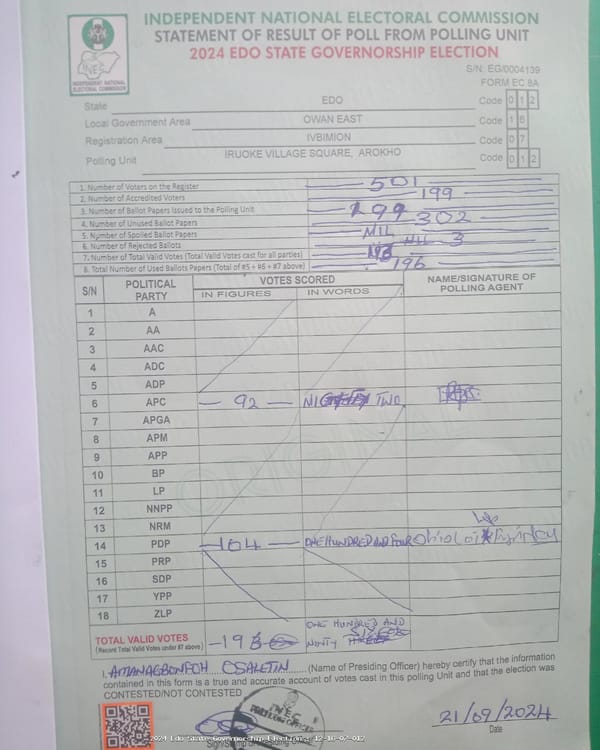 INDEPENDENT NATIONAL ELECTORAL COMMISSION
STATEMENT OF RESULT OF POLL FROM POLLING UNIT
2024 EDO STATE GOVERNORSHIP ELECTION
INEC
INDEPENDENT NATIONAL ELECTORAL COMMISSION
S/N: EG/0004139
FORM EC 8A
State EDO Code 0 1 2
Local Government Area OWAN EAST Code 1 6
Registration Area IVBIMION Code 0 7
Polling Unit IRUOKE VILLAGE SQUARE, AROKHO Code 0 1 2
1. Number of Voters on the Register 501
2. Number of Accredited Voters 199
3. Number of Ballot Papers Issued to the Polling Unit
4. Number of Unused Ballot Papers 302
5. Number of Spoiled Ballot Papers NIL
6. Number of Rejected Ballots 3
7. Number of Total Valid Votes (Total Valid Votes cast for all parties)
8. Total Number of Used Ballots Papers (Total of #5 + #6 + #7 above) 196
S/N POLITICAL PARTY VOTES SCORED NAME/SIGNATURE OF POLLING AGENT
IN FIGURES IN WORDS
1 A
2 AA
3 AAC
4 ADC
5 ADP
6 APC 92 TWO
7 APGA
8 APM
9 APP
10 BP
11 LP
12 NNPP
13 NRM
14 PDP 104 ONE HUNDRED AND FOUR
15 PRP
16 SDP
17 YPP
18 ZLP
TOTAL VALID VOTES ONE HUNDRED AND
(Record Total Valid Votes under #7 above) NINTY
I, AMANAGBONFOH OSARETIN (Name of Presiding Officer) hereby certify that the information
contained in this form is a true and accurate account of votes cast in this polling Unit and that the election was
CONTESTED/NOT CONTESTED
INEC
PRESIDING OFFICER
21/09/2024
Date
2024 Edo State Governorship Election - 12-16-07-012